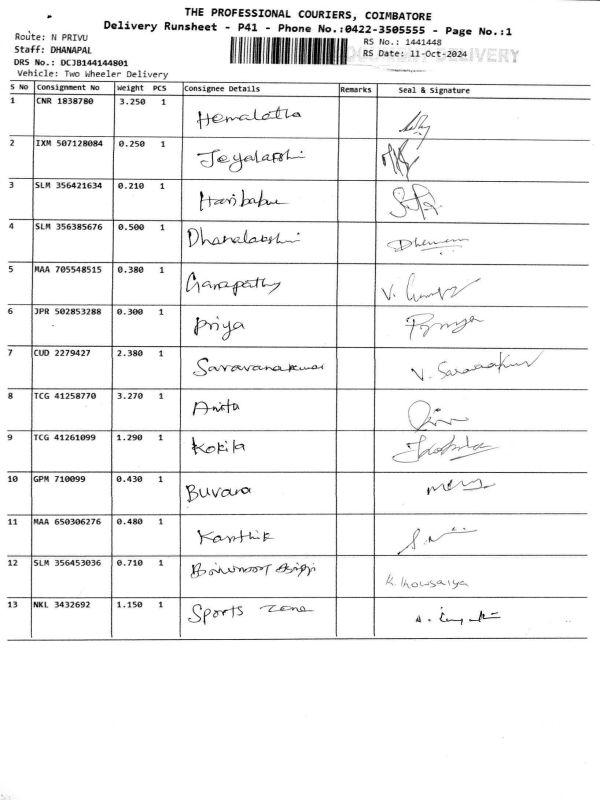 THE PROFESSIONAL COURIERS, COIMBATORE
Delivery Runsheet - P41 - Phone No.:0422-3505555 - Page No.:1
Route: N PRIVU
RS No.: 1441448
Staff: DHANAPAL
DELIVERY
RS Date: 11-Oct-2024
DRS No.: DCJB144144801
Vehicle: Two Wheeler Delivery
S No Consignment No Weight PCS Consignee Details Remarks Seal & Signature
1 CNR 1838780 3.250 1 Hemalatha
2 IXM 507128084 0.250 1 Jeyalakshi
3 SLM 356421634 0.210 1 Haribabu
4 SLM 356385676 0.500 1 Dhanalakshmi
5 MAA 705548515 0.380 1 Ganapathy V.
6 JPR 502853288 0.300 1 Priya Priya
7 CUD 2279427 2.380 1 Saravanakumar V. Saravakum
8 TCG 41258770 3.270 1 Anita
9 TCG 41261099 1.290 1 Kokila Kokila
10 GPM 710099 0.430 1 Buvana
11 MAA 650306276 0.480 1 Karthik
12 SLM 356453036 0.710 1 K. Kowsalya
13 NKL 3432692 1.150 1 Sports Zone